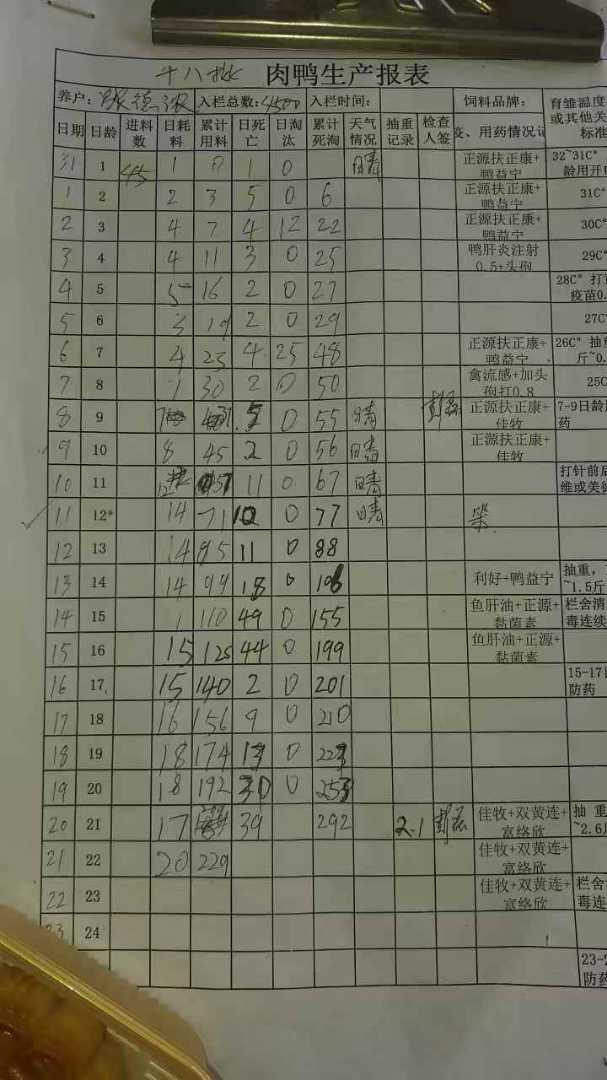 十八批 肉鸭生产报表
养户： 入栏总数：4500 入栏时间： 饲料品牌： 育雏温度
日期 日龄 进料数 日耗料 累计用料 日死亡 日淘汰 累计死淘 天气情况 抽重记录 检查人签 变、用药情况记 或其他关 标准
31 1 45 1 1 0 晴 正源扶正康+鸭益宁 32~31C° 龄用开
1 2 2 3 5 0 6 正源扶正康+鸭益宁 31C°
2 3 4 7 4 12 22 正源扶正康+鸭益宁 30C°
3 4 4 11 3 0 25 鸭肝炎注射0.5+头孢 29C°
4 5 5 16 2 0 27 28C° 打 疫苗0.
5 6 3 19 2 0 29 27C°
6 7 4 23 4 25 48 正源扶正康+鸭益宁 26C° 抽 斤~0.
7 8 30 2 0 50 禽流感+加头孢打0.8 25C
8 9 5 0 55 晴 正源扶正康+佳牧 7-9日龄 药
9 10 8 45 2 0 56 晴 正源扶正康+佳牧
10 11 57 11 0 67 晴 打针前后 维或美
11 12* 14 71 10 0 77 晴
12 13 14 85 11 0 88
13 14 14 99 18 0 106 利好+鸭益宁 抽重， ~1.5斤
14 15 1 110 49 0 155 鱼肝油+正源+黏菌素 栏舍清 毒连续
15 16 15 125 44 0 199 鱼肝油+正源+黏菌素
16 17 15 140 2 0 201 15-17 防药
17 18 16 156 9 0 210
18 19 18 174 13 0 223
19 20 18 192 30 0 253
20 21 17 39 292 2.1 佳牧+双黄连+富络欣 抽 重 ~2.6
21 22 20 229 佳牧+双黄连+富络欣
22 23 佳牧+双黄连+富络欣 栏舍 毒连
23 24
23-2 防药